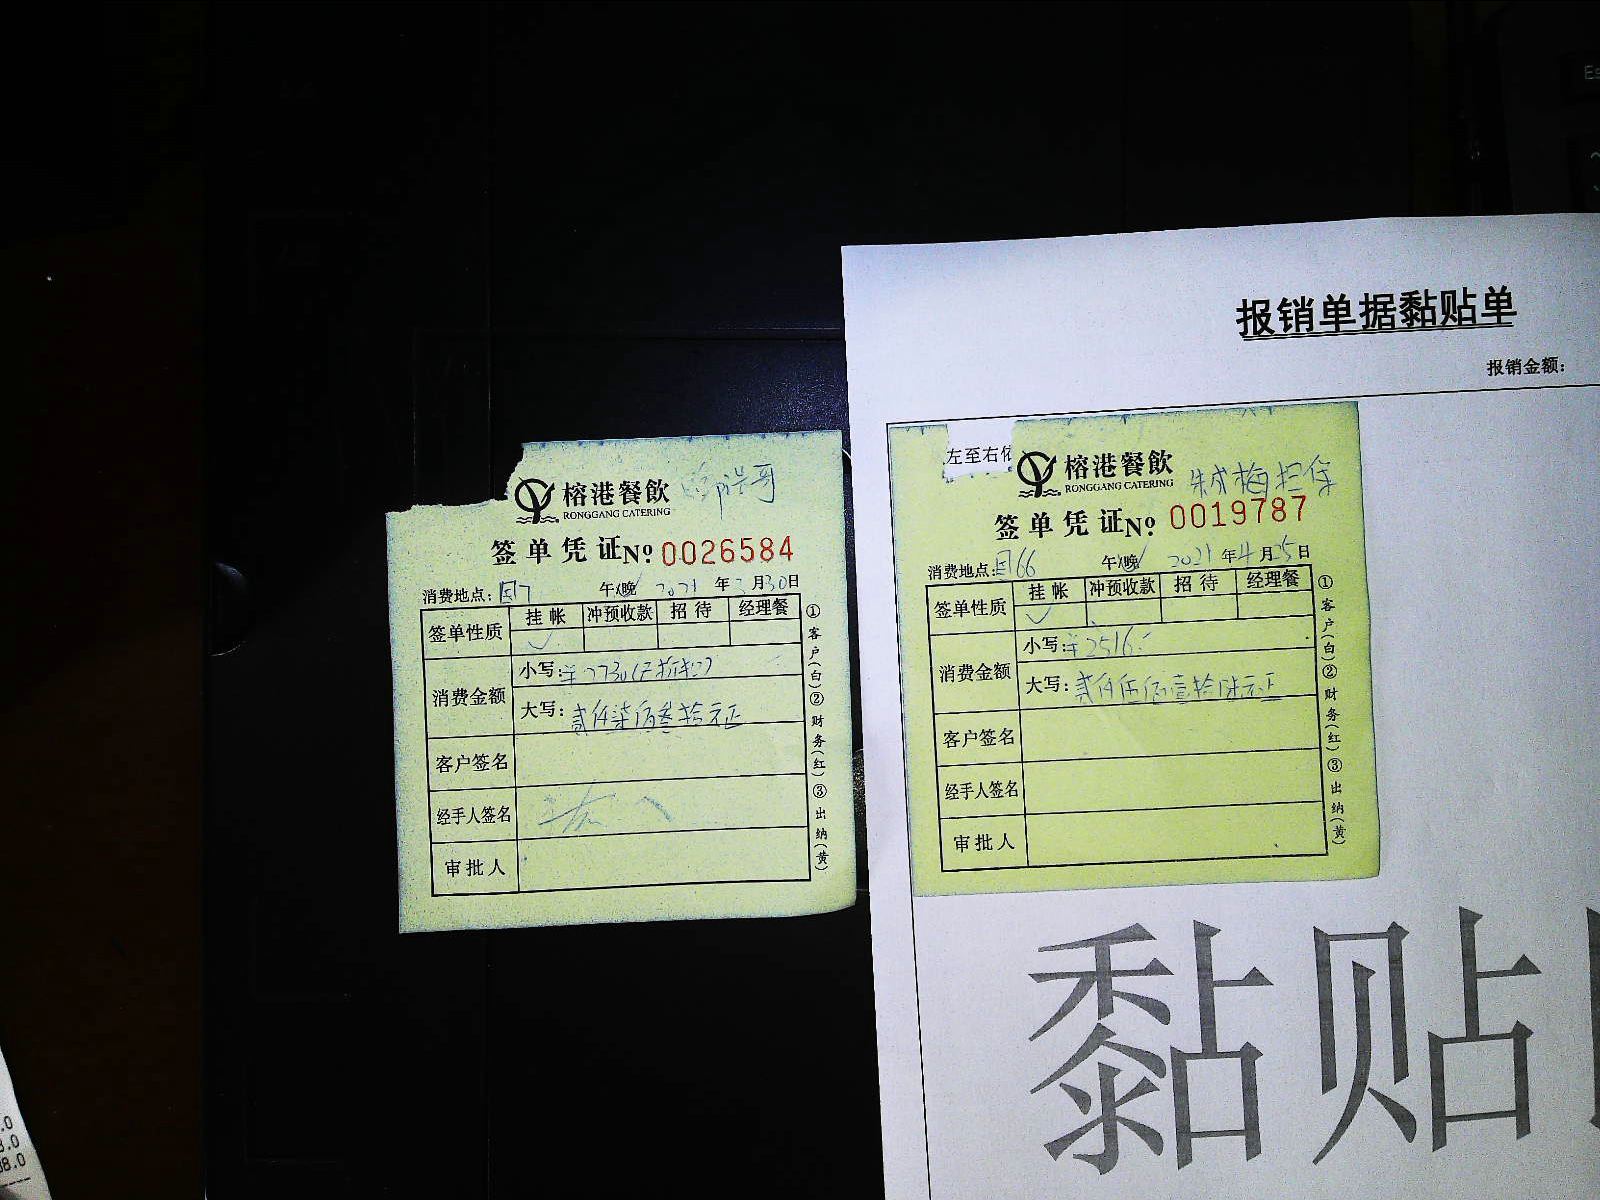 榕港餐飲
RONGGANG CATERING
签单凭证 No. 0026584
消费地点: 午/晚 2021年3月30日
签单性质 挂帐 冲预收款 招待 经理餐
✓
消费金额 小写:¥2730
大写:贰仟柒佰叁拾元正
客户签名
经手人签名
审批人
①客户(白)②财务(红)③出纳(黄)
报销单据黏贴单
报销金额:
左至右依
榕港餐飲
RONGGANG CATERING
签单凭证 No. 0019787
消费地点: 午/晚 2021年4月25日
签单性质 挂帐 冲预收款 招待 经理餐
✓
消费金额 小写:¥2516.-
大写:贰仟伍佰壹拾陆元正
客户签名
经手人签名
审批人
①客户(白)②财务(红)③出纳(黄)
黏贴